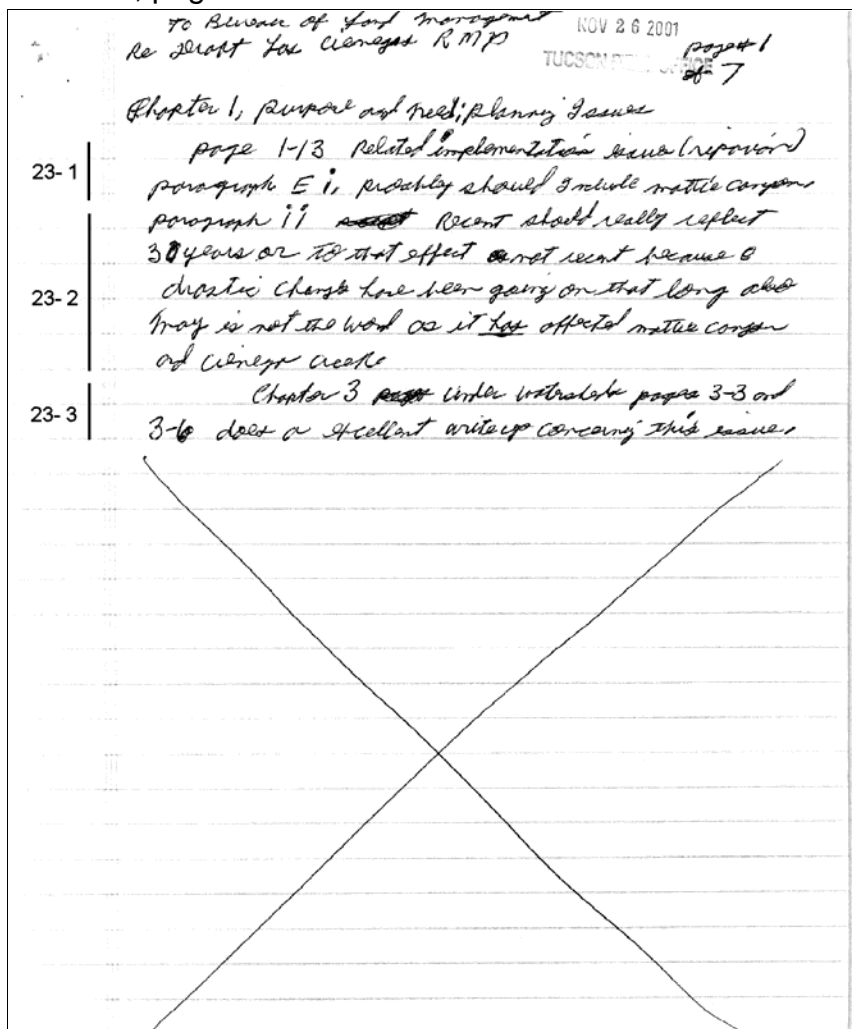 , pag
To Bureau of Land Management
NOV 26 2001
Re Draft Las Cienegas RMP
page # 1
TUCSON OFFICE
of 7
Chapter 1, purpose and need; planning Issues
page 1-13 Related implementation issue (riparian)
23-1
paragraph E i, probably should Include mattie canyon,
paragraph ii Recent should really reflect
30 years or to that effect not recent because
23-2
drastic change have been going on that long also
may is not the word as it has affected mattie canyon
and cienega creek
Chapter 3 under watershed pages 3-3 and
23-3
3-6 does a excellent write up concerning this issue,